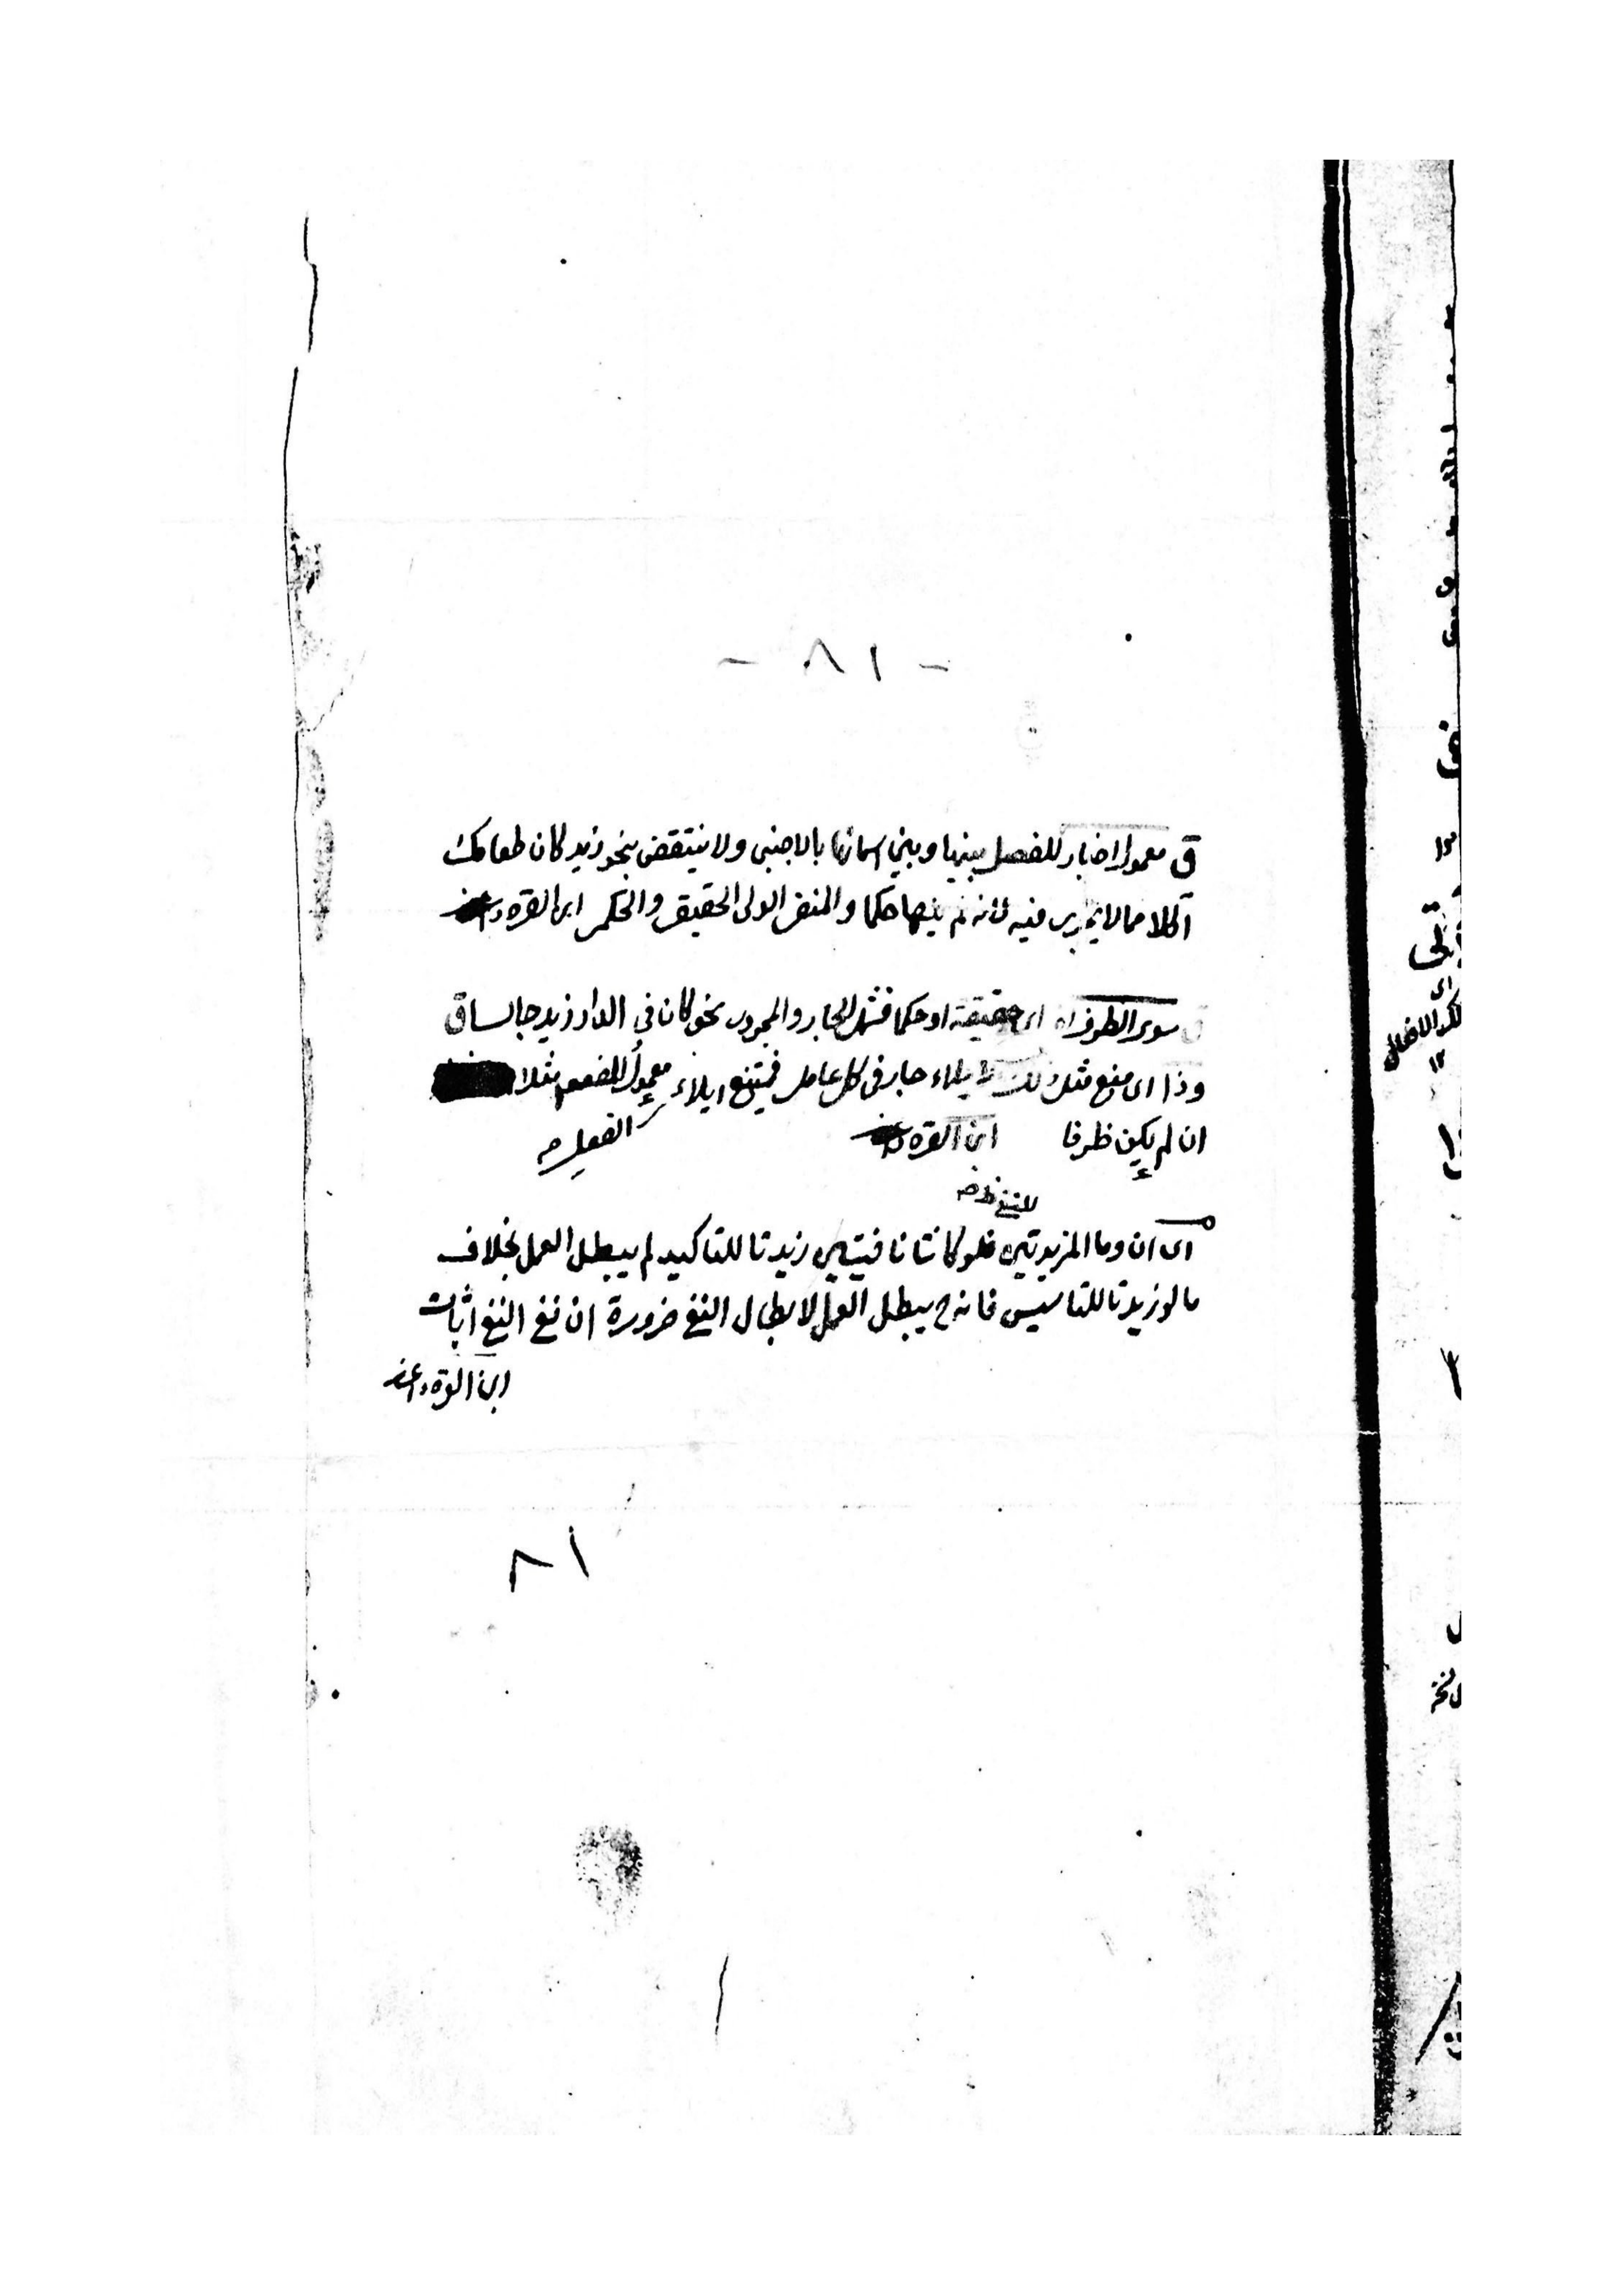 - ٨١ -
ق معمول اخبار للفصل بينها وبين اسمائها بالاجنبى ولا ينتقض بنحو زيد كان طعامك
آكلا مما لا فيه لانه لم حكما والمنفى الحقيقى والحكمى ابن القره داغى
سوى الظرف اه اى حقيقة او حكما فشمل الجار والمجرور نحو كان فى الدار زيد جالسا ق
وذا اى منع مثل ذلك الايلاء جار فى كل عامل فيمتنع ايلاء معمول مثلا
ان لم يكن ظرفا ابن القره داغى الفعل صح
للنفى
اى ان وما المزيدتين فلو كانتا نافيتين زيدتا للتاكيد لم يبطل العمل بخلاف
ما لو زيدتا للتاسيس فانه ح يبطل العمل لابطال النفى ضرورة ان نفى النفى اثبات
ابن القره داغى
٨١